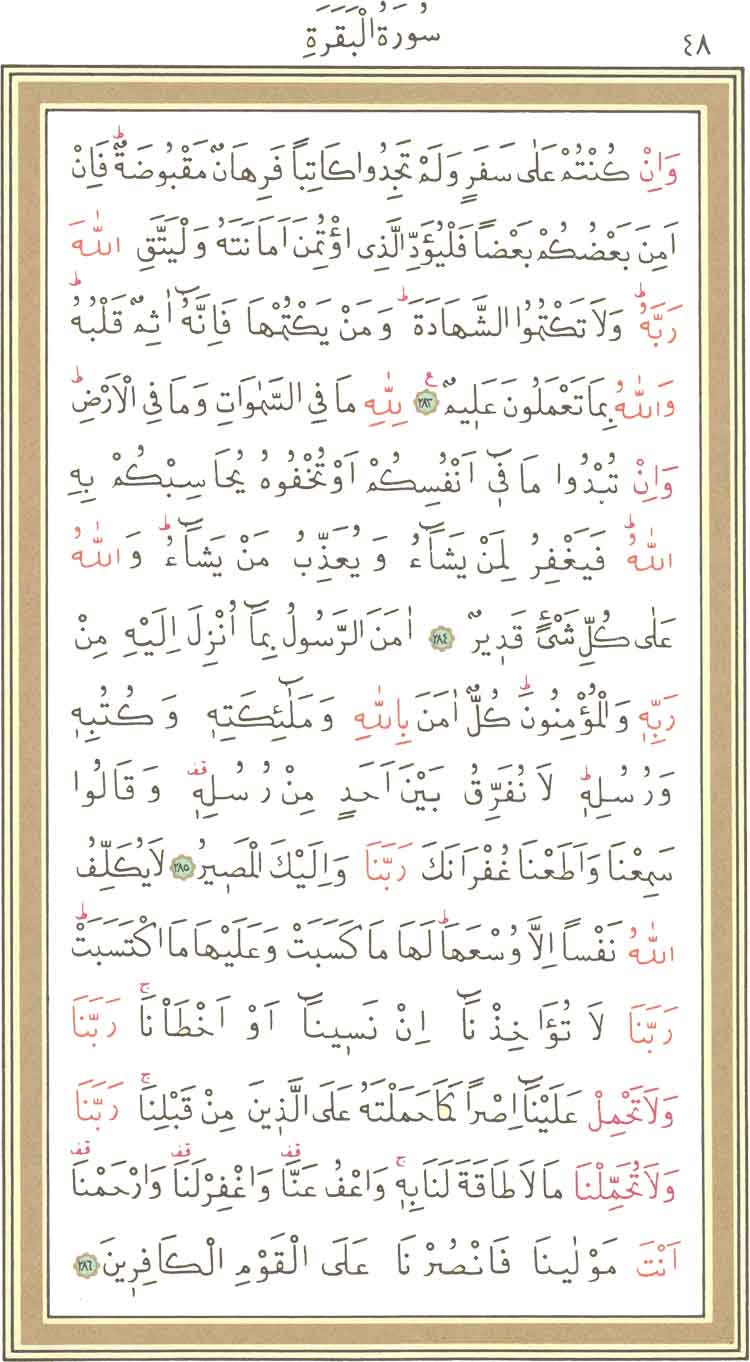 سُورَةُ الْبَقَرَةِ ٤٨
وَاِنْ كُنْتُمْ عَلٰى سَفَرٍ وَلَمْ تَجِدُوا كَاتِباً فَرِهَانٌ مَقْبُوضَةٌؕ فَاِنْ
اَمِنَ بَعْضُكُمْ بَعْضاً فَلْيُؤَدِّ الَّذِى اؤْتُمِنَ اَمَانَتَهُ وَلْيَتَّقِ اللّٰهَ
رَبَّهُؕ وَلَا تَكْتُمُوا الشَّهَادَةَؕ وَمَنْ يَكْتُمْهَا فَاِنَّهُٓ اٰثِمٌ قَلْبُهُؕ
وَاللّٰهُ بِمَا تَعْمَلُونَ عَلٖيمٌ ﴿٢٨٣﴾ لِلّٰهِ مَا فِي السَّمٰوَاتِ وَمَا فِي الْاَرْضِؕ
وَاِنْ تُبْدُوا مَا فٖٓي اَنْفُسِكُمْ اَوْ تُخْفُوهُ يُحَاسِبْكُمْ بِهِ
اللّٰهُؕ فَيَغْفِرُ لِمَنْ يَشَٓاءُ وَيُعَذِّبُ مَنْ يَشَٓاءُؕ وَاللّٰهُ
عَلٰى كُلِّ شَىْءٍ قَدٖيرٌ ﴿٢٨٤﴾ اٰمَنَ الرَّسُولُ بِمَٓا اُنْزِلَ اِلَيْهِ مِنْ
رَبِّهٖ وَالْمُؤْمِنُونَؕ كُلٌّ اٰمَنَ بِاللّٰهِ وَمَلٰٓئِكَتِهٖ وَكُتُبِهٖ
وَرُسُلِهٖؕ لَا نُفَرِّقُ بَيْنَ اَحَدٍ مِنْ رُسُلِهٖ قف وَقَالُوا
سَمِعْنَا وَاَطَعْنَا غُفْرَانَكَ رَبَّنَا وَاِلَيْكَ الْمَصٖيرُ ﴿٢٨٥﴾ لَا يُكَلِّفُ
اللّٰهُ نَفْساً اِلَّا وُسْعَهَاؕ لَهَا مَا كَسَبَتْ وَعَلَيْهَا مَا اكْتَسَبَتْؕ
رَبَّنَا لَا تُؤَاخِذْنَٓا اِنْ نَسٖينَٓا اَوْ اَخْطَاْنَاۚ رَبَّنَا
وَلَا تَحْمِلْ عَلَيْنَٓا اِصْراً كَمَا حَمَلْتَهُ عَلَى الَّذٖينَ مِنْ قَبْلِنَاۚ رَبَّنَا
وَلَا تُحَمِّلْنَا مَا لَا طَاقَةَ لَنَا بِهٖۚ وَاعْفُ عَنَّا قف وَاغْفِرْ لَنَا قف وَارْحَمْنَا قف
اَنْتَ مَوْلٰينَا فَانْصُرْنَا عَلَى الْقَوْمِ الْكَافِرٖينَ ﴿٢٨٦﴾